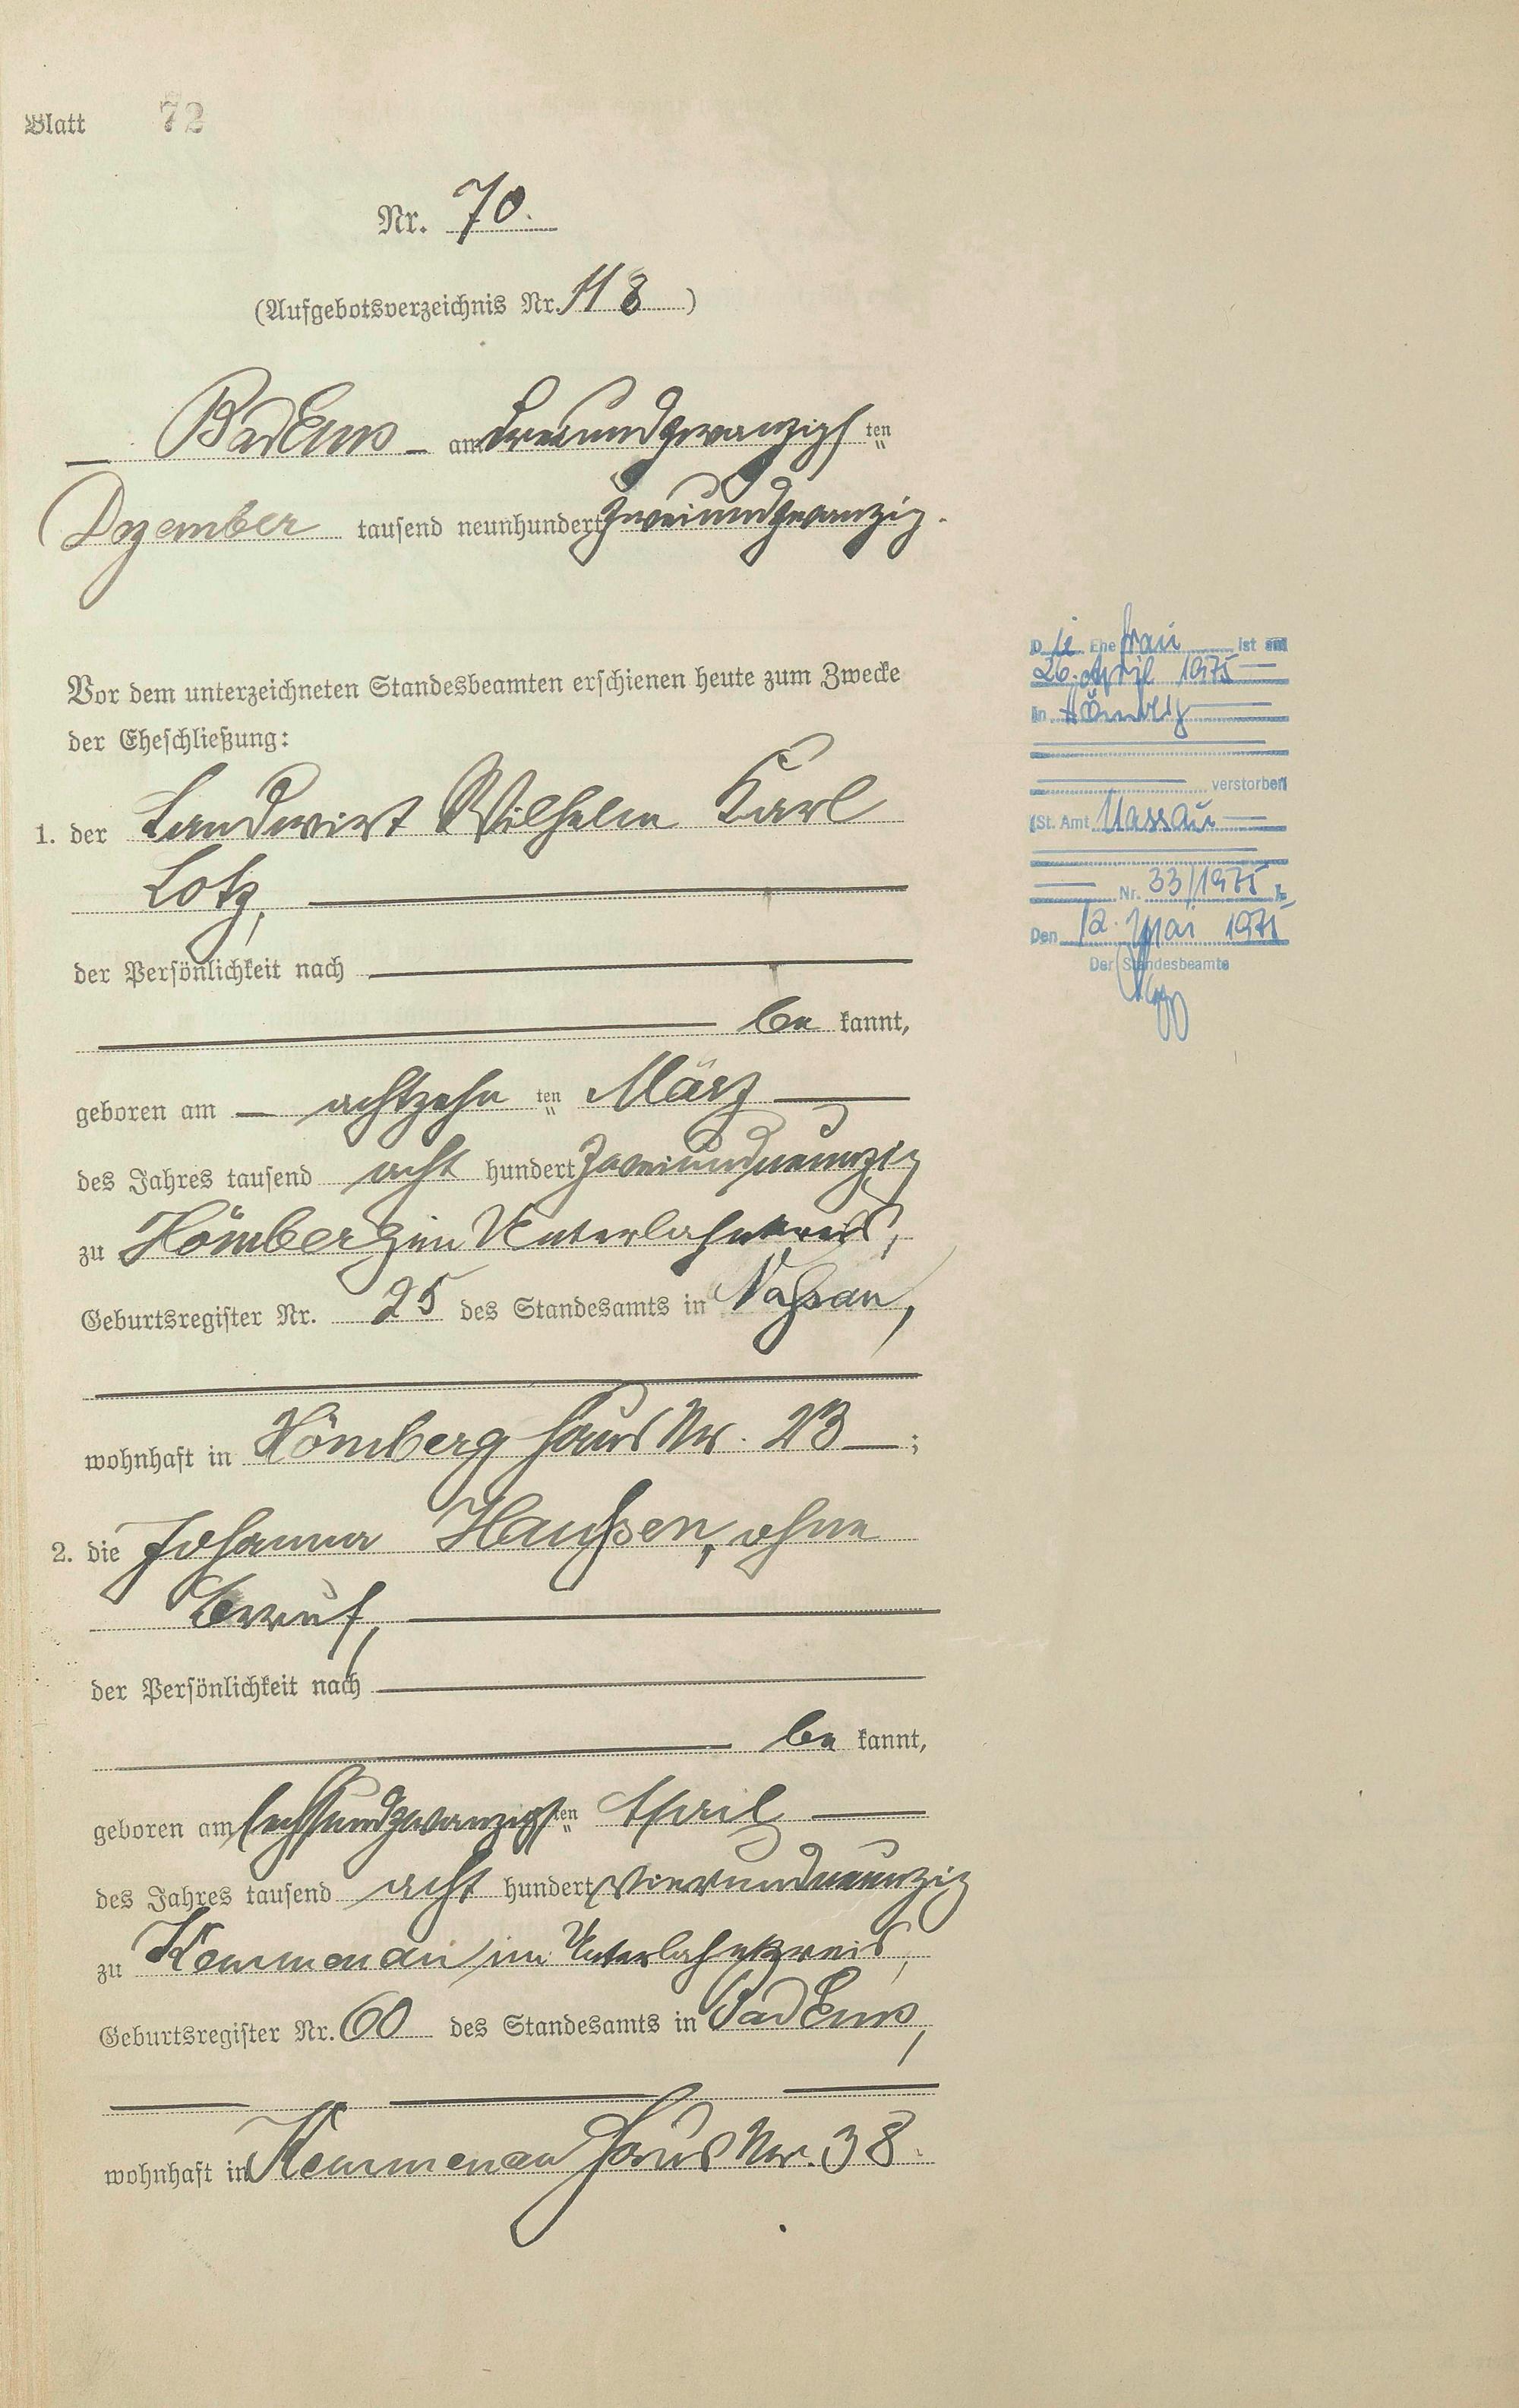 Blatt 72
Nr. 70.
(Aufgebotsverzeichnis Nr. 118)
Bad Ems am dreiundzwanzigsten
Dezember tausend neunhundert zweiundzwanzig.
Vor dem unterzeichneten Standesbeamten erschienen heute zum Zwecke
der Eheschließung:
1. der Landwirt Wilhelm Karl
Lotz,
der Persönlichkeit nach
be kannt,
geboren am achtzehn ten März
des Jahres tausend acht hundert zweiundneunzig
zu Hömberg im Unterlahnkreis,
Geburtsregister Nr. 25 des Standesamts in Nassau,
wohnhaft in Hömberg Haus Nr. 23;
2. die Johanna Haussen, ohne
Beruf,
der Persönlichkeit nach
be kannt,
geboren am sechsundzwanzigsten April
des Jahres tausend acht hundert vierundneunzig
zu Kemmenau im Unterlahnkreis,
Geburtsregister Nr. 60 des Standesamts in Bad Ems,
wohnhaft in Kemmenau Haus Nr. 38.
Die Ehefrau ist am
26. April 1975
in Hömberg
verstorben
(St. Amt Nassau
Nr. 33/1975
Den 12. Mai 1975
Der Standesbeamte